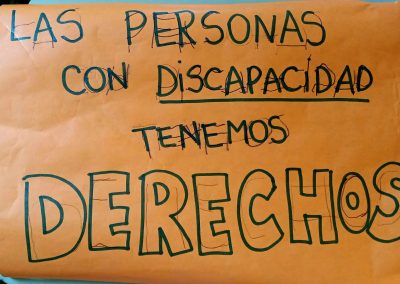 LAS PERSONAS
CON DiSCAPACiDAD
TENEMOS
DERECHOS